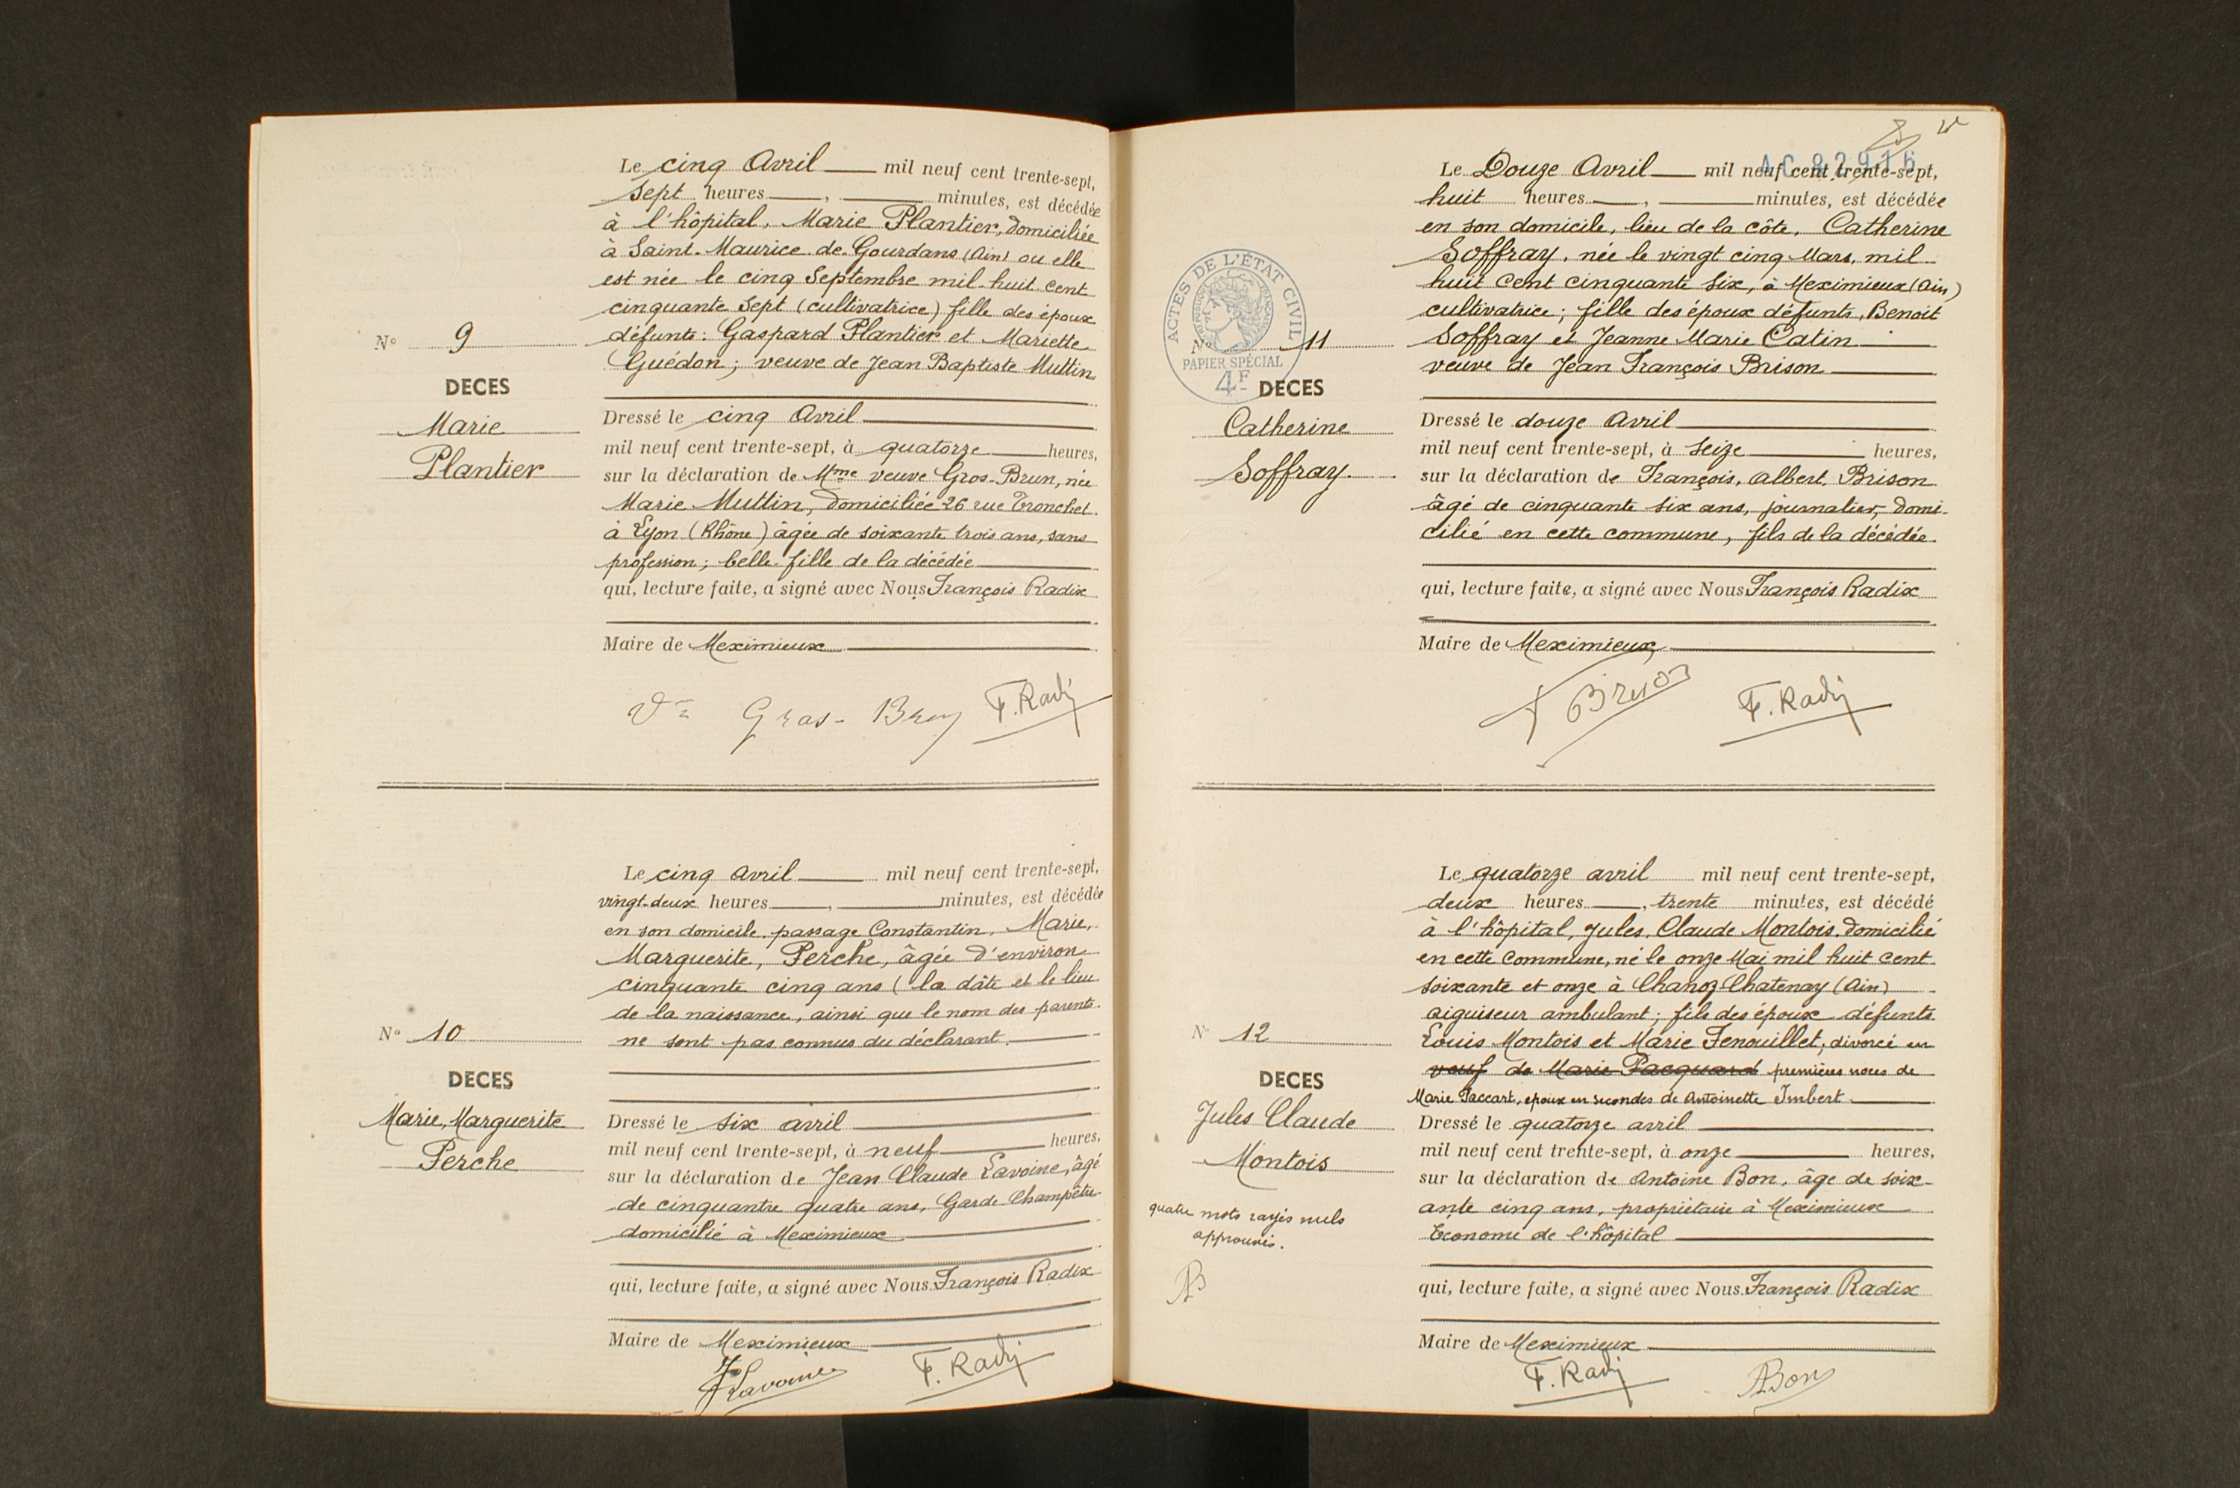 Le cinq Avril mil neuf cent trente-sept,
sept heures, minutes, est décédée
à l'hôpital, Marie Plantier, domiciliée
à Saint-Maurice-de-Gourdans (Ain) ou elle
est née le cinq Septembre mil-huit cent
cinquante sept (cultivatrice) fille des époux
défunts: Gaspard Plantier et Mariette
Guédon; veuve de Jean Baptiste Muttin
N° 9
DECES
Marie
Plantier
Dressé le cinq Avril
mil neuf cent trente-sept, à quatorze heures,
sur la déclaration de Mme veuve Gros-Brun, née
Marie Muttin, domiciliée 26 rue Tronchet
à Lyon (Rhône) âgée de soixante trois ans, sans
profession; belle-fille de la décédée
qui, lecture faite, a signé avec Nous François Radix
Maire de Meximieux
Vve Gras-Brun F. Radix
Le cinq avril mil neuf cent trente-sept,
vingt-deux heures, minutes, est décédée
en son domicile, passage Constantin, Marie,
Marguerite, Perche, âgée d'environ
cinquante cinq ans (la dâte et le lieu
de la naissance, ainsi que le nom des parents
ne sont pas connus du déclarant.
N° 10
DECES
Marie, Marguerite
Perche
Dressé le six avril
mil neuf cent trente-sept, à neuf heures,
sur la déclaration de Jean Claude Lavoine, âgé
de cinquantre quatre ans, Garde-Champêtre
domicilié à Meximieux
qui, lecture faite, a signé avec Nous François Radix
Maire de Meximieux
Lavoine F. Radix
AC 82916
Le Douze Avril mil neuf cent trente-sept,
huit heures, minutes, est décédée
en son domicile, lieu de la côte, Catherine
Soffray, née le vingt cinq Mars, mil
huit cent cinquante six, à Meximieux (Ain)
cultivatrice; fille des époux défunts, Benoit
Soffray et Jeanne Marie Catin
veuve de Jean François Brison
ACTES DE L'ÉTAT CIVIL
PAPIER SPÉCIAL
4F
N° 11
DECES
Catherine
Soffray.
Dressé le douze Avril
mil neuf cent trente-sept, à seize heures,
sur la déclaration de François, Albert, Brison
âgé de cinquante six ans, journalier, domi-
cilié en cette commune, fils de la décédée.
qui, lecture faite, a signé avec Nous François Radix
Maire de Meximieux
Brison F. Radix
Le quatorze avril mil neuf cent trente-sept,
deux heures, trente minutes, est décédé
à l'hôpital, Jules, Claude Montois, domicilié
en cette commune, né le onze Mai mil huit cent
soixante et onze à Chanoz Chatenay (Ain)
aiguiseur ambulant; fils des époux défunts
Louis Montois et Marie Fenouillet; divorcé en
veuf de Marie Pacquard premières noces de
Marie Paccart, epoux en secondes de Antoinette Imbert
N° 12
DECES
Jules Claude
Montois
quatre mots rayés nuls
approuvés.
AB
Dressé le quatorze avril
mil neuf cent trente-sept, à onze heures,
sur la déclaration de Antoine Bon, âge de soix-
ante cinq ans, propriétaire à Meximieux
Econome de l'hôpital
qui, lecture faite, a signé avec Nous François Radix
Maire de Meximieux
F. Radix ABon